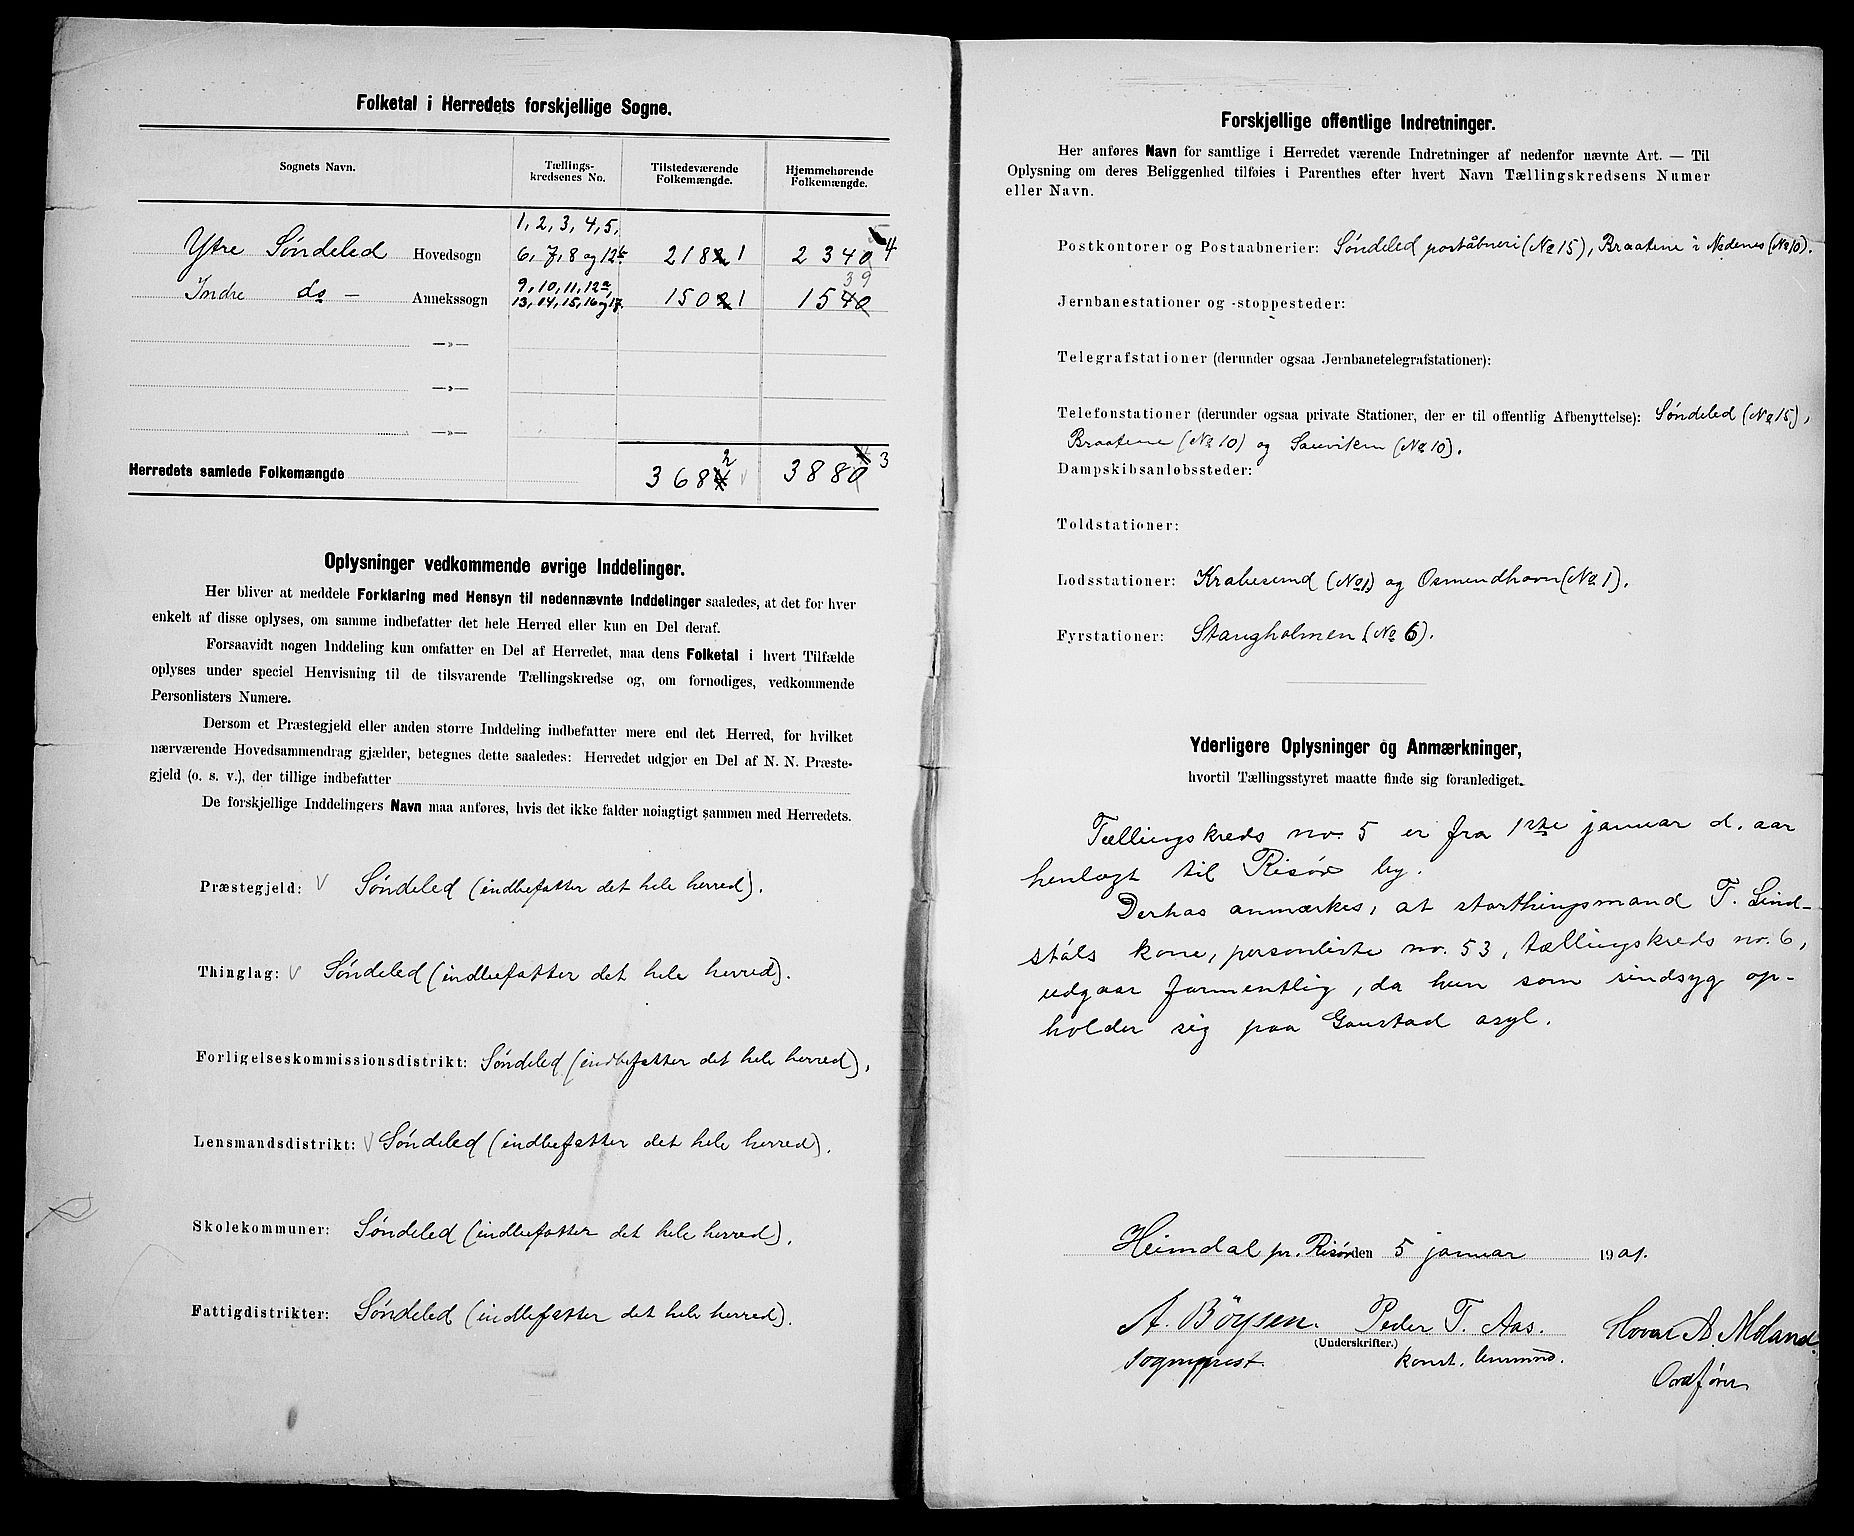 Folketal i Herredets forskjellige Sogne.
Sognets Navn. Tællings-kredsenes No. Tilstedeværende Folkemængde. Hjemmehørende Folkemængde.
1, 2, 3, 4, 5,
Ytre Søndeled Hovedsogn 6, 7, 8 og 12b 2182 1 2340 4
9, 10, 11, 12a, 39
Indre do — Annekssogn 13, 14, 15, 16 og 17. 1502 1 1540
—»—
—»—
—»—
2 3
Herredets samlede Folkemængde 3684 3880
Oplysninger vedkommende øvrige Inddelinger.
Her bliver at meddele Forklaring med Hensyn til nedennævnte Inddelinger saaledes, at det for hver
enkelt af disse oplyses, om samme indbefatter det hele Herred eller kun en Del deraf.
Forsaavidt nogen Inddeling kun omfatter en Del af Herredet, maa dens Folketal i hvert Tilfælde
oplyses under speciel Henvisning til de tilsvarende Tællingskredse og, om fornødiges, vedkommende
Personlisters Numere.
Dersom et Præstegjeld eller anden større Inddeling indbefatter mere end det Herred, for hvilket
nærværende Hovedsammendrag gjælder, betegnes dette saaledes: Herredet udgjør en Del af N. N. Præste-
gjeld (o. s. v.), der tillige indbefatter
De forskjellige Inddelingers Navn maa anføres, hvis det ikke falder nøiagtigt sammen med Herredets.
Præstegjeld: Søndeled (indbefatter det hele herred).
Thinglag: Søndeled (indbefatter det hele herred).
Forligelseskommissionsdistrikt: Søndeled (indbefatter det hele herred),
Lensmandsdistrikt: Søndeled (indbefatter det hele herred).
Skolekommuner: Søndeled (indbefatter det hele herred).
Fattigdistrikter: Søndeled (indbefatter det hele herred).
Forskjellige offentlige Indretninger.
Her anføres Navn for samtlige i Herredet værende Indretninger af nedenfor nævnte Art. — Til
Oplysning om deres Beliggenhed tilføies i Parenthes efter hvert Navn Tællingskredsens Numer
eller Navn.
Postkontorer og Postaabnerier: Søndeled poståbneri (No 15), Braatene i Nedenes (No 10).
Jernbanestationer og -stoppesteder:
Telegrafstationer (derunder ogsaa Jernbanetelegrafstationer):
Telefonstationer (derunder ogsaa private Stationer, der er til offentlig Afbenyttelse): Søndeled (No 15),
Braatene (No 10) og Sauviken (No 10).
Dampskibsanløbssteder:
Toldstationer:
Lodsstationer: Krabesund (No 1) og Osmundhavn (No 1).
Fyrstationer: Stangholmen (No 6).
Yderligere Oplysninger og Anmærkninger,
hvortil Tællingsstyret maatte finde sig foranlediget.
Tællingskreds no. 5 er fra 1ste januar d. aar
henlagt til Risør by.
Derhos anmærkes, at storthingsmand T. Lind-
ståls kone, personliste no. 53, tællingskreds no. 6,
udgaar formentlig, da hun som sindsyg op-
holder sig paa Gaustad asyl.
Heimdal pr. Risør den 5 januar 1901.
A. Böysen. Peder T. Aas. Hovar A. Moland.
(Underskrifter.)
sogneprest. konst. lensmand. Ordfører